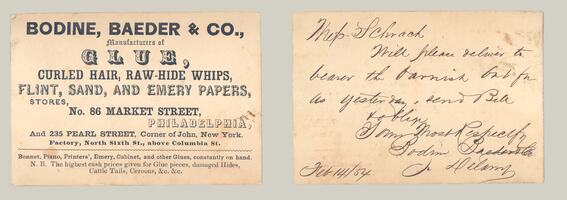 BODINE, BAEDER & CO.,
Manufacturers of
GLUE,
CURLED HAIR, RAW-HIDE WHIPS,
FLINT, SAND, AND EMERY PAPERS,
STORES,
No. 86 MARKET STREET,
PHILADELPHIA,
And 235 PEARL STREET, Corner of John, New York.
Factory, North Sixth St., above Columbia St.
Bonnet, Piano, Printers', Emery, Cabinet, and other Glues, constantly on hand.
N. B. The highest cash prices given for Glue pieces, damaged Hides,
Cattle Tails, Ceroons, &c. &c.
Mess Schrack
Will please deliver to
bearer the Varnish
as yesterday, send Bill
& oblige
Your Most Respectfy
Bodine Baeder & Co
Feb 14/54